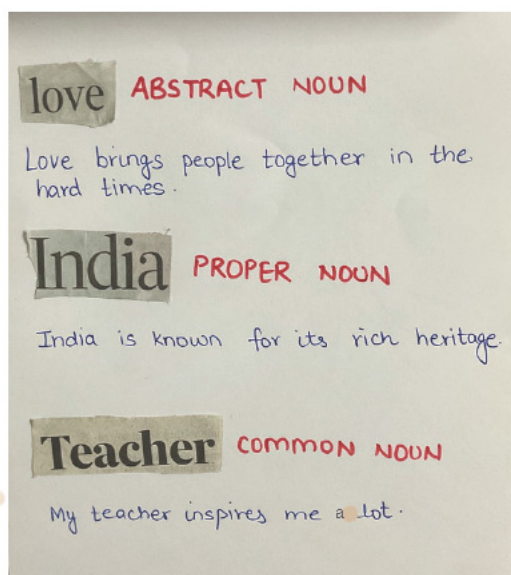 love ABSTRACT NOUN
Love brings people together in the
hard times.
India PROPER NOUN
India is known for its rich heritage.
Teacher COMMON NOUN
My teacher inspires me a lot.